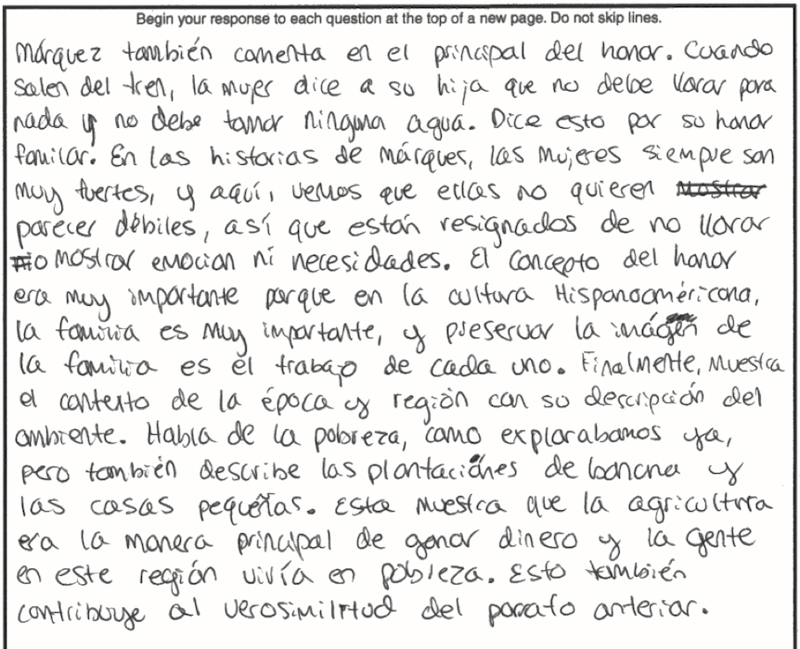 Begin your response to each question at the top of a new page. Do not skip lines.
Márquez también comenta en el principal del honor. Cuando
salen del tren, la mujer dice a su hija que no debe llorar para
nada y no debe tomar ninguna agua. Dice esto por su honor
familiar. En las historias de márques, las mujeres siempre son
muy fuertes, y aquí, vemos que ellas no quieren mostrar
parecer débiles, así que están resignados de no llorar
o mostrar emocion ni necesidades. El concepto del honor
era muy importante porque en la cultura Hispanoaméricana,
la familia es muy importante, y preservar la imágen de
la familia es el trabajo de cada uno. Finalmente, muestra
el contexto de la época y región con su descripción del
ambiente. Habla de la pobreza, como explorabamos ya,
pero también describe las plantaciones de banana y
las casas pequeñas. Esto muestra que la agricultura
era la manera principal de ganar dinero y la gente
en este región vivía en pobleza. Esto también
contribuye al verosimilitud del parrafo anterior.